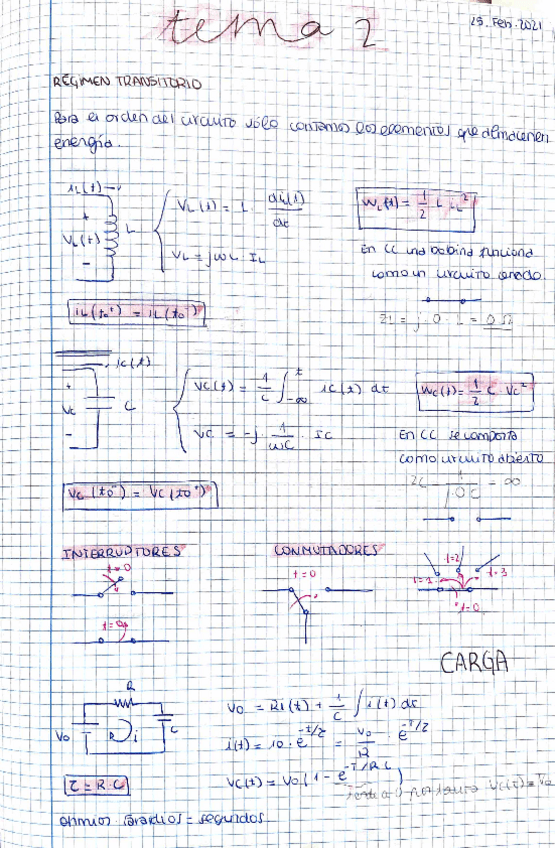 tema 2
25. Feb. 2021
RÉGIMEN TRANSITORIO
Para el orden del circuito sólo contamos los elementos que almacenen
energía.
iL(t)
+
VL(t)
L
-
VL(t) = L · diL(t)/dt
VL = jωL · IL
WL(t) = 1/2 L iL²
En CC una bobina funciona
como un circuito cerrado.
ZL = j·0·L = 0 Ω
iL(t0⁺) = iL(t0⁻)
iC(t)
+
Vc
C
-
VC(t) = 1/C ∫ -∞ t iC(t) dt
VC = -j · 1/ωC · IC
WC(t) = 1/2 C VC²
En CC se comporta
como circuito abierto
1/j·0·C = ∞
VC(t0⁻) = VC(t0⁺)
INTERRUPTORES
CONMUTADORES
t=0
t=0
t=0
t=2
t=1
t=3
t=0
CARGA
R
V0
i
C
V0 = Ri(t) + 1/C ∫ i(t) dt
i(t) = i0 · e^-t/τ = V0/R · e^-t/τ
VC(t) = V0 (1 - e^-t/RC)
por tanto VC(t) = V0
τ = R·C
ohmios · faradios = segundos